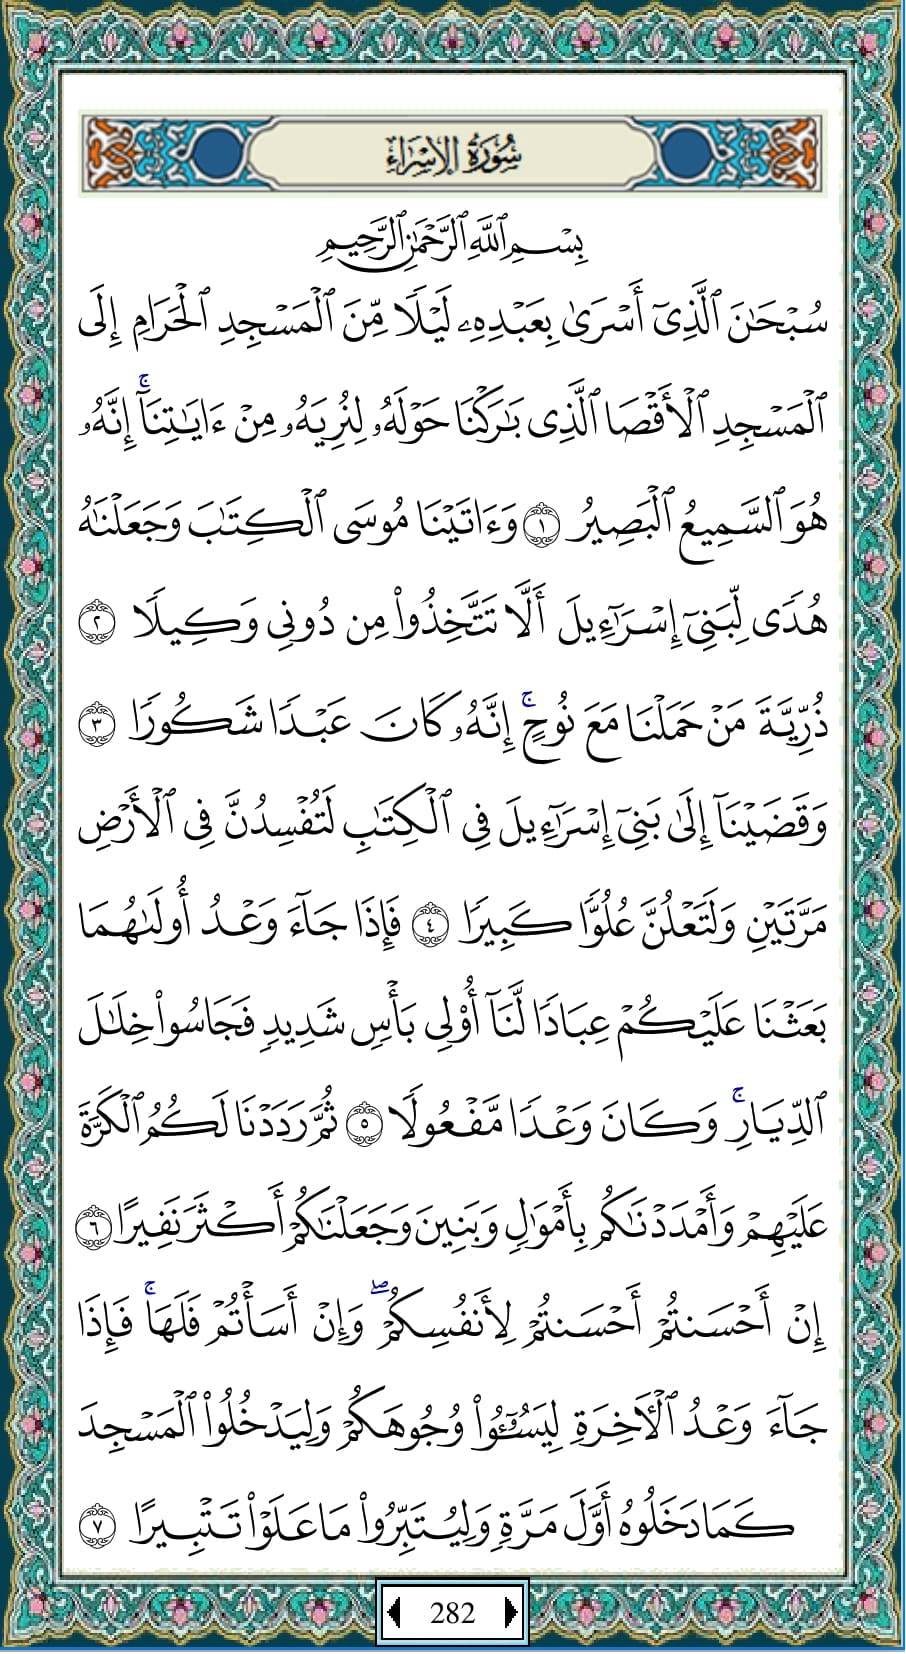 سُورَةُ الإِسْرَاءِ
بِسْمِ ٱللَّهِ ٱلرَّحْمَٰنِ ٱلرَّحِيمِ
سُبْحَٰنَ ٱلَّذِىٓ أَسْرَىٰ بِعَبْدِهِۦ لَيْلًا مِّنَ ٱلْمَسْجِدِ ٱلْحَرَامِ إِلَى
ٱلْمَسْجِدِ ٱلْأَقْصَا ٱلَّذِى بَٰرَكْنَا حَوْلَهُۥ لِنُرِيَهُۥ مِنْ ءَايَٰتِنَآ ۚ إِنَّهُۥ
هُوَ ٱلسَّمِيعُ ٱلْبَصِيرُ ١ وَءَاتَيْنَا مُوسَى ٱلْكِتَٰبَ وَجَعَلْنَٰهُ
هُدًى لِّبَنِىٓ إِسْرَٰٓءِيلَ أَلَّا تَتَّخِذُوا۟ مِن دُونِى وَكِيلًا ٢
ذُرِّيَّةَ مَنْ حَمَلْنَا مَعَ نُوحٍ ۚ إِنَّهُۥ كَانَ عَبْدًا شَكُورًا ٣
وَقَضَيْنَآ إِلَىٰ بَنِىٓ إِسْرَٰٓءِيلَ فِى ٱلْكِتَٰبِ لَتُفْسِدُنَّ فِى ٱلْأَرْضِ
مَرَّتَيْنِ وَلَتَعْلُنَّ عُلُوًّا كَبِيرًا ٤ فَإِذَا جَآءَ وَعْدُ أُولَىٰهُمَا
بَعَثْنَا عَلَيْكُمْ عِبَادًا لَّنَآ أُو۟لِى بَأْسٍ شَدِيدٍ فَجَاسُوا۟ خِلَٰلَ
ٱلدِّيَارِ ۚ وَكَانَ وَعْدًا مَّفْعُولًا ٥ ثُمَّ رَدَدْنَا لَكُمُ ٱلْكَرَّةَ
عَلَيْهِمْ وَأَمْدَدْنَٰكُم بِأَمْوَٰلٍ وَبَنِينَ وَجَعَلْنَٰكُمْ أَكْثَرَ نَفِيرًا ٦
إِنْ أَحْسَنتُمْ أَحْسَنتُمْ لِأَنفُسِكُمْ ۖ وَإِنْ أَسَأْتُمْ فَلَهَا ۚ فَإِذَا
جَآءَ وَعْدُ ٱلْءَاخِرَةِ لِيَسُۥٓـُٔوا۟ وُجُوهَكُمْ وَلِيَدْخُلُوا۟ ٱلْمَسْجِدَ
كَمَا دَخَلُوهُ أَوَّلَ مَرَّةٍ وَلِيُتَبِّرُوا۟ مَا عَلَوْا۟ تَتْبِيرًا ٧
282